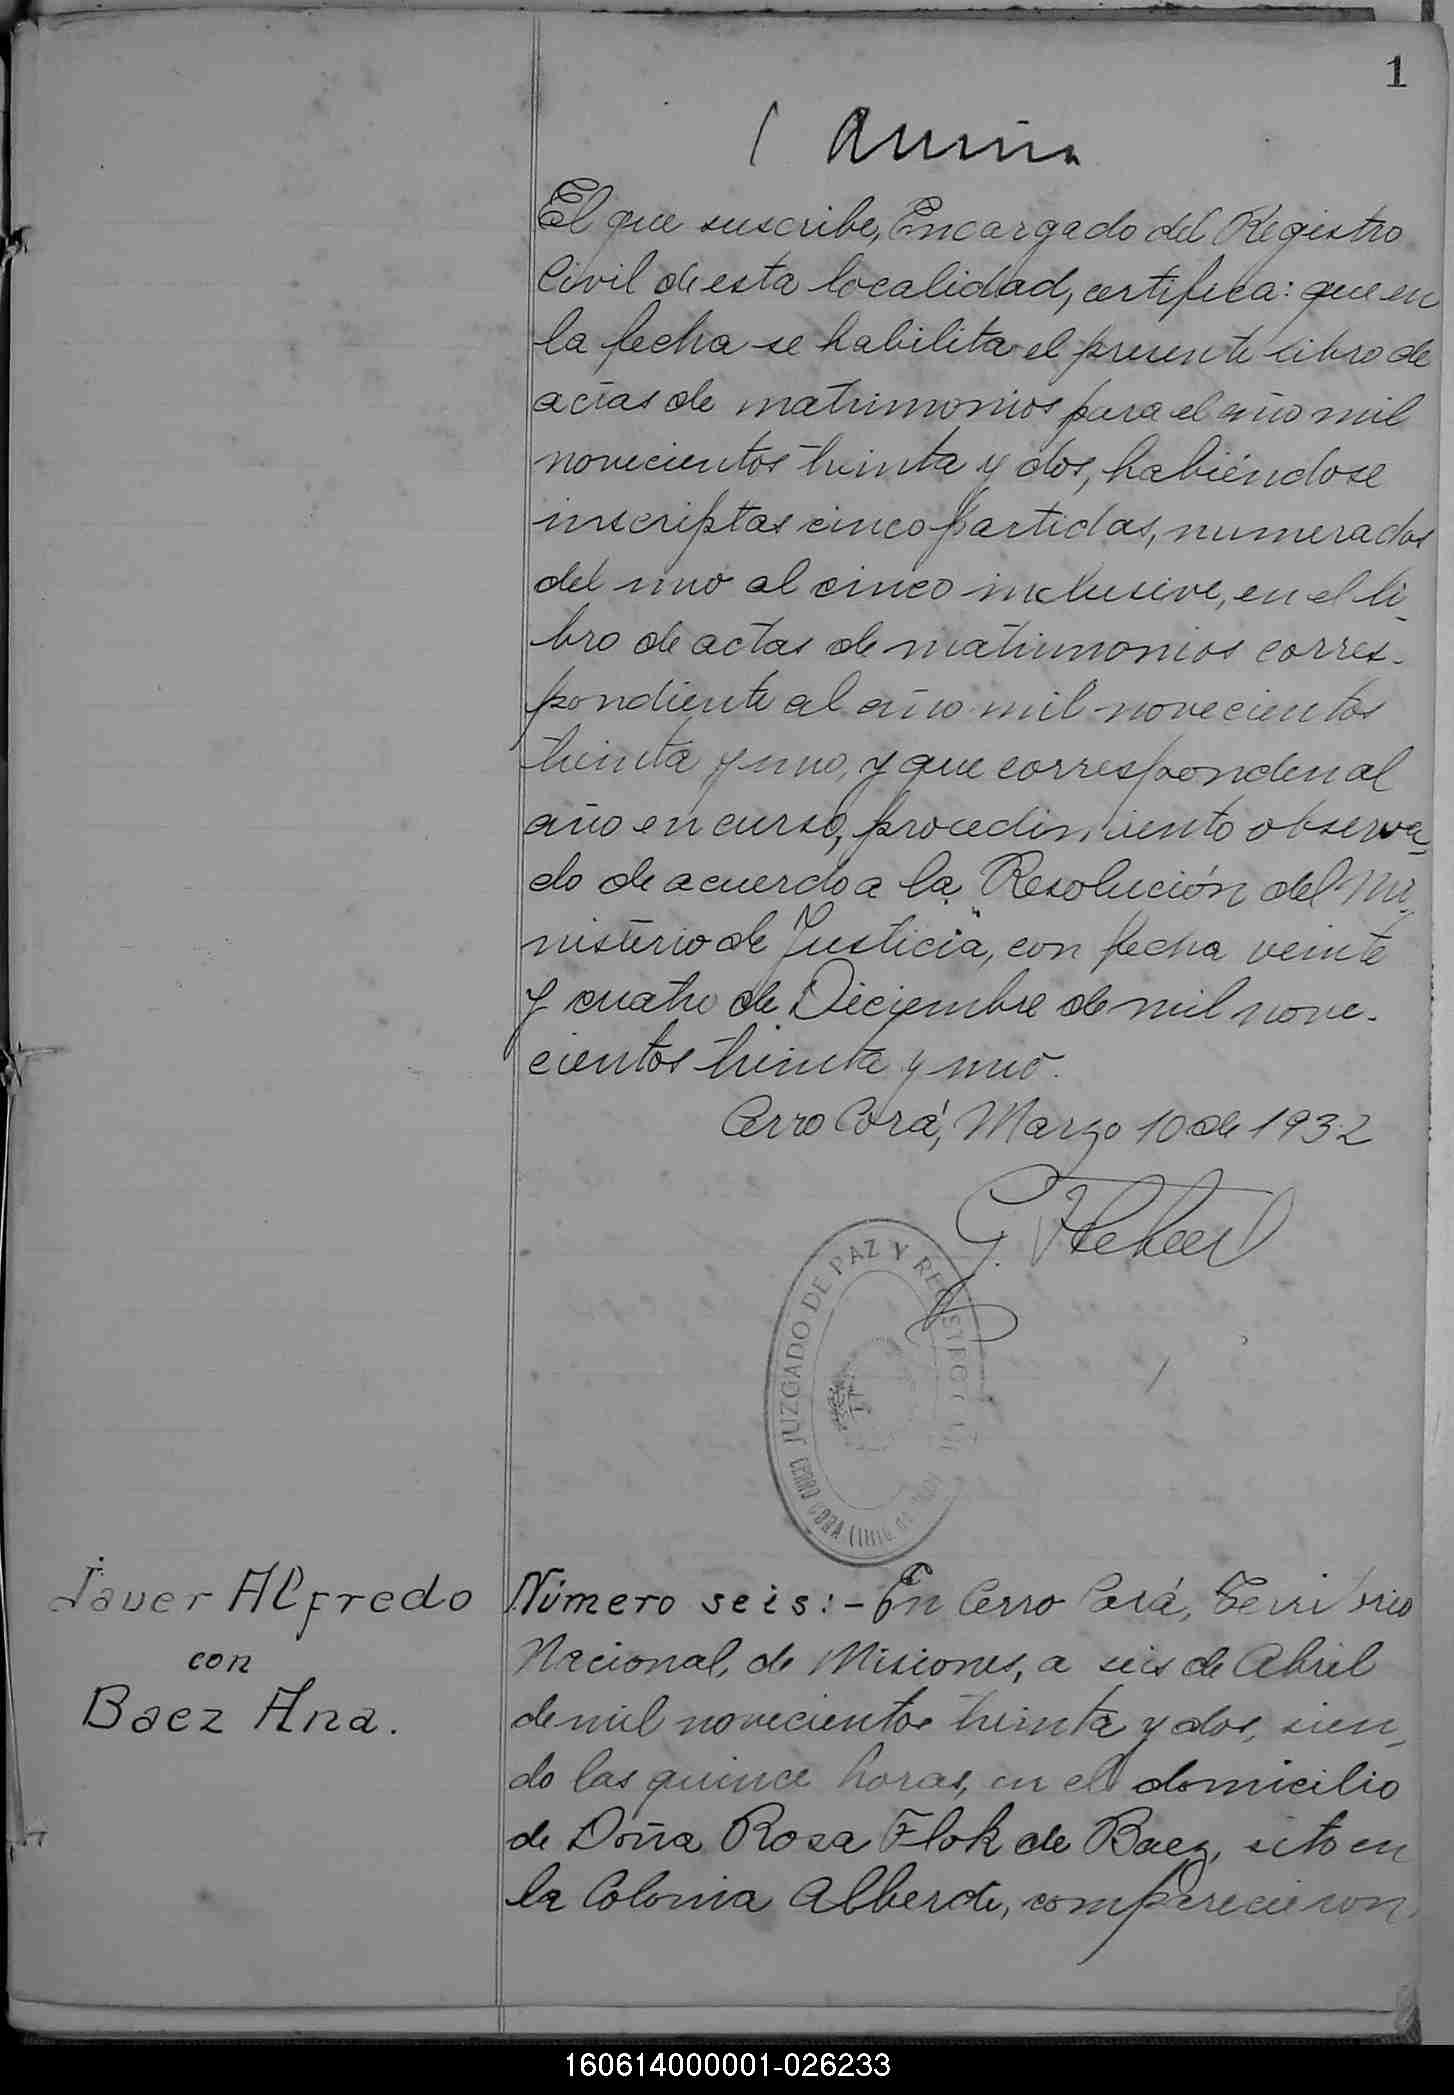 1
El que suscribe, Encargado del Registro
Civil de esta localidad, certifica: que en
la fecha se habilita el presente libro de
actas de matrimonios para el año mil
novecientos treinta y dos, habiéndose
inscriptas cinco partidas, numeradas
del uno al cinco inclusive, en el li-
bro de actas de matrimonios corres-
pondiente al año mil novecientos
treinta y uno, y que corresponden al
año en curso, procedimiento observa-
do de acuerdo a la Resolución del Mi-
nisterio de Justicia, con fecha veinte
y cuatro de Diciembre de mil nove-
cientos treinta y uno.
Cerro Corá, Marzo 10 de 1932
JUZGADO DE PAZ Y REGISTRO
CERRO CORA
Javer Alfredo
con
Baez Ana.
Número seis:- En Cerro Corá, Territorio
Nacional, de Misiones, a seis de Abril
de mil novecientos treinta y dos, sien-
do las quince horas, en el domicilio
de Doña Rosa Flok de Baez, sito en
la Colonia Alberdi, comparecieron
160614000001-026233